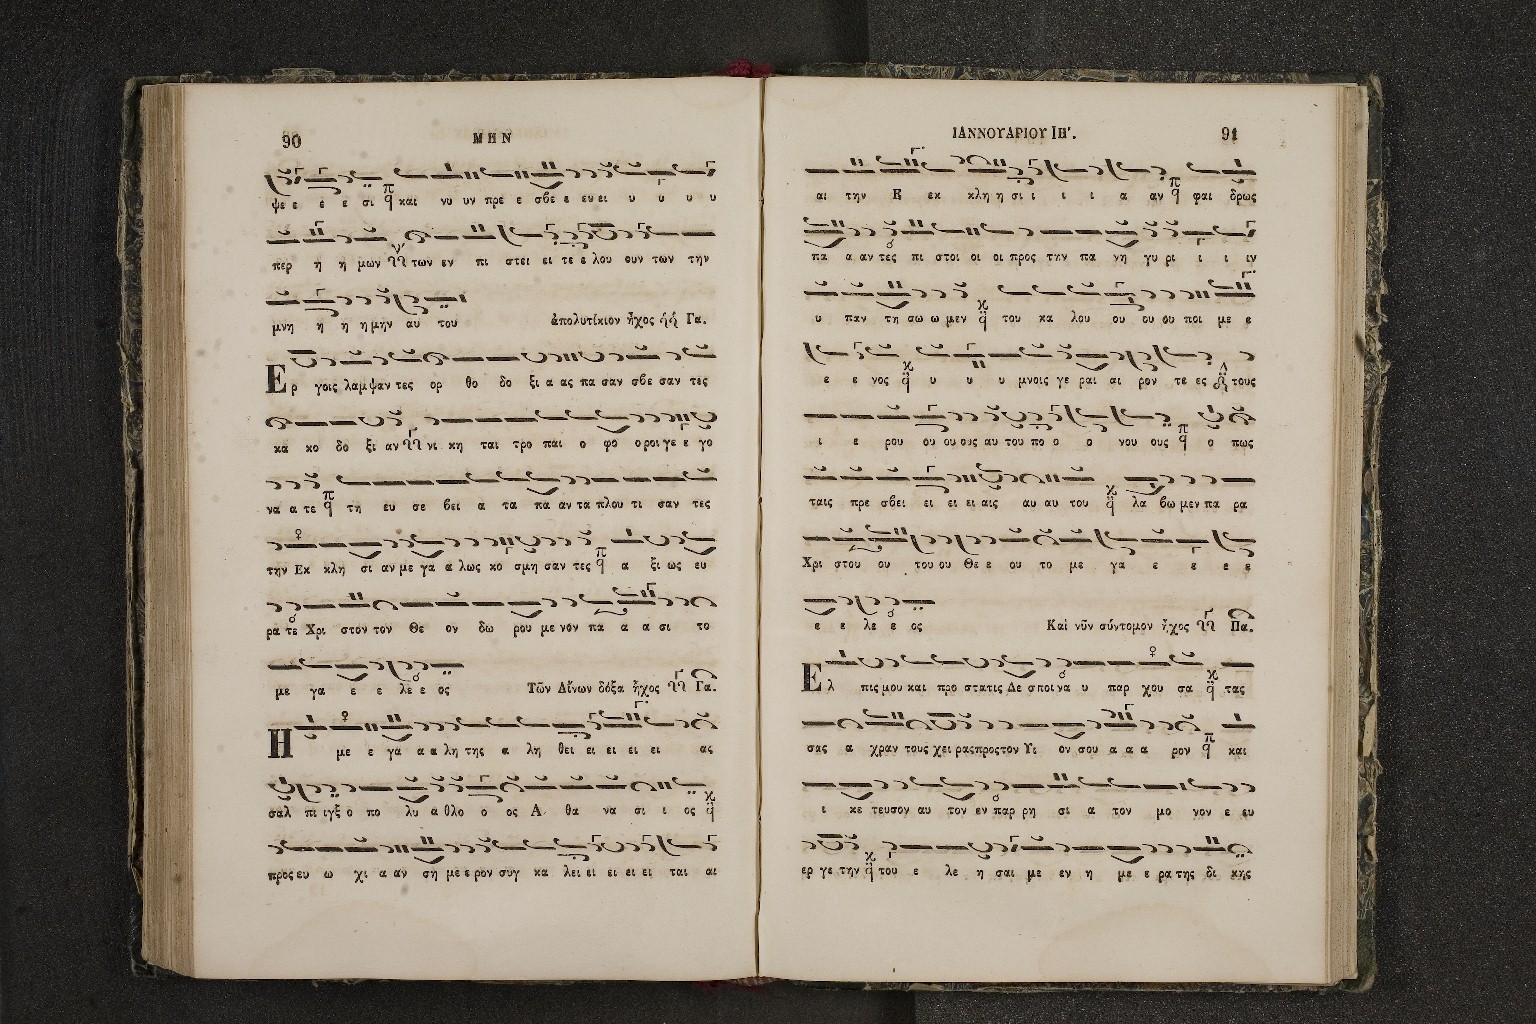 90
ΜΗΝ
ψε ε ε ε σι π ᾳ και νυ υν πρε ε σβε ε ευ ει υ υ υ υ
περ η η μων των εν πι στει ει τε ε λου ουν των την
μνη η η η μην αυ του ἀπολυτίκιον ἦχος Γα.
Ερ γοις λαμψαν τες ορ θο δο ξι α ας πα σαν σβε σαν τες
κα κο δο ξι αν νι κη ται τρο παι ο φο ο ροι γε ε γο
να α τε τη ευ σε βει α τα πα αν τα πλου τι σαν τες
την Εκ κλη σι αν με γα α λως κο σμη σαν τες α ξι ως ευ
ρα τε Χρι στον τον Θε ον δω ρου με νον πα α α σι το
με γα ε ε λε ε ος Τῶν Αἴνων δόξα ἦχος Γα.
Η με ε γα α α λη της α λη θει ει ει ει ει ας
σαλ πι ιγξ ο πο λυ α θλο ο ος Α θα να σι ι ος
προς ευ ω χι α αν ση με ε ρον συγ κα λει ει ει ει ει ται αι
ΙΑΝΝΟΥΑΡΙΟΥ ΙΗ'.
91
αι την Ε εκ κλη η σι ι ι ι α αν φαι δρως
πα α αν τες πι στοι οι οι προς την πα νη γυ ρι ι ι ιν
υ παν τη σω ω μεν του κα λου ου ου ου ποι με ε
ε ε νος υ υ υ μνοις γε ραι αι ρον τε ες τους
ι ε ρου ου ου ους αυ του πο ο ο νου ους ο πως
ταις πρε σβει ει ει ει αις αυ αυ του λα βω μεν πα ρα
Χρι στου ου του ου Θε ε ου το με γα ε ε ε ε
ε ε λε ε ος Καὶ νῦν σύντομον ἦχος Πα.
Ελ πις μου και προ στατις Δε σποι να υ παρ χου σα τας
σας α χραν τους χει ρας προς τον Υι ον σου α α α ρον και
ι κε τευσον αυ τον εν παρ ρη σι α τον μο νον ε ευ
ερ γε την του ε λε η σαι με εν η με ε ρα της δι κης